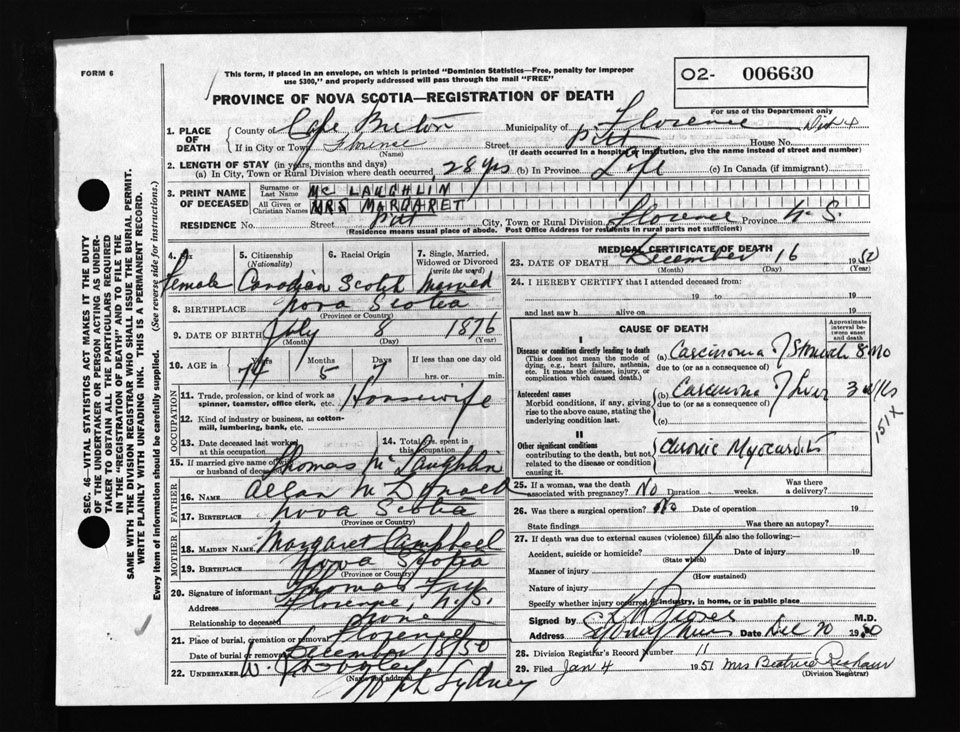 FORM 6
This form, if placed in an envelope, on which is printed "Dominion Statistics—Free, penalty for improper
use $300," and properly addressed will pass through the mail "FREE"
O2- 006630
For use of the Department only
PROVINCE OF NOVA SCOTIA—REGISTRATION OF DEATH
1. PLACE OF DEATH
County of Cape Breton Municipality of Florence Dist 4
If in City or Town Florence (Name) Street House No.
(If death occurred in a hospital or institution, give the name instead of street and number)
2. LENGTH OF STAY (in years, months and days)
(a) In City, Town or Rural Division where death occurred 28 yrs (b) In Province Life (c) In Canada (if immigrant)
3. PRINT NAME OF DECEASED
Surname or Last Name MC LAUGHLIN
All Given or Christian Names MRS MARGARET
RESIDENCE No. Street City, Town or Rural Division Florence Province N. S.
(Residence means usual place of abode. Post Office Address for residents in rural parts not sufficient)
SEC. 46—VITAL STATISTICS ACT MAKES IT THE DUTY
OF THE UNDERTAKER OR PERSON ACTING AS UNDER-
TAKER TO OBTAIN ALL THE PARTICULARS REQUIRED
IN THE "REGISTRATION OF DEATH" AND TO FILE THE
SAME WITH THE DIVISION REGISTRAR WHO SHALL ISSUE THE BURIAL PERMIT.
WRITE PLAINLY WITH UNFADING INK. THIS IS A PERMANENT RECORD.
Every item of information should be carefully supplied. (See reverse side for instructions.)
4. Sex
5. Citizenship (Nationality)
6. Racial Origin
7. Single, Married, Widowed or Divorced (write the word)
Female Canadian Scotch Married
8. BIRTHPLACE Nova Scotia
(Province or Country)
9. DATE OF BIRTH July 8 1876
(Month) (Day) (Year)
10. AGE in Years Months Days If less than one day old
74 5 7 hrs. or min.
OCCUPATION
11. Trade, profession, or kind of work as spinner, teamster, office clerk, etc. Housewife
12. Kind of industry or business, as cotton-mill, lumbering, bank, etc.
13. Date deceased last worked at this occupation
14. Total yrs. spent in this occupation
15. If married give name of wife or husband of deceased Thomas McLaughlin
FATHER
16. NAME Allan McDonald
17. BIRTHPLACE Nova Scotia
(Province or Country)
MOTHER
18. MAIDEN NAME Margaret Campbell
19. BIRTHPLACE Nova Scotia
(Province or Country)
20. Signature of informant Thomas
Address Florence, N.S.
Relationship to deceased none
21. Place of burial, cremation or removal Florence
Date of burial or removal December 18/50
22. UNDERTAKER
North Sydney
MEDICAL CERTIFICATE OF DEATH
23. DATE OF DEATH December 16 1950
(Month) (Day) (Year)
24. I HEREBY CERTIFY that I attended deceased from:
19 to 19
and last saw h alive on 19
CAUSE OF DEATH
Approximate interval between onset and death
I
Disease or condition directly leading to death
(This does not mean the mode of dying, e.g., heart failure, asthenia, etc. It means the disease, injury, or complication which caused death.)
(a) Carcinoma of Stomach 8 mo
due to (or as a consequence of)
Antecedent causes
Morbid conditions, if any, giving rise to the above cause, stating the underlying condition last.
(b) Carcinoma of Liver 3 wks
due to (or as a consequence of)
(c)
151X
II
Other significant conditions
contributing to the death, but not related to the disease or condition causing it.
Chronic Myocarditis
25. If a woman, was the death associated with pregnancy? No Duration weeks. Was there a delivery?
26. Was there a surgical operation? No Date of operation 19
State findings Was there an autopsy?
27. If death was due to external causes (violence) fill in also the following:—
Accident, suicide or homicide? Date of injury 19
(State which)
Manner of injury
(How sustained)
Nature of injury
Specify whether injury occurred in industry, in home, or in public place
Signed by M.D.
Address Sydney Mines Date Dec 20 1950
28. Division Registrar's Record Number 11
29. Filed Jan 4 1951 Mrs Beatrice
(Division Registrar)